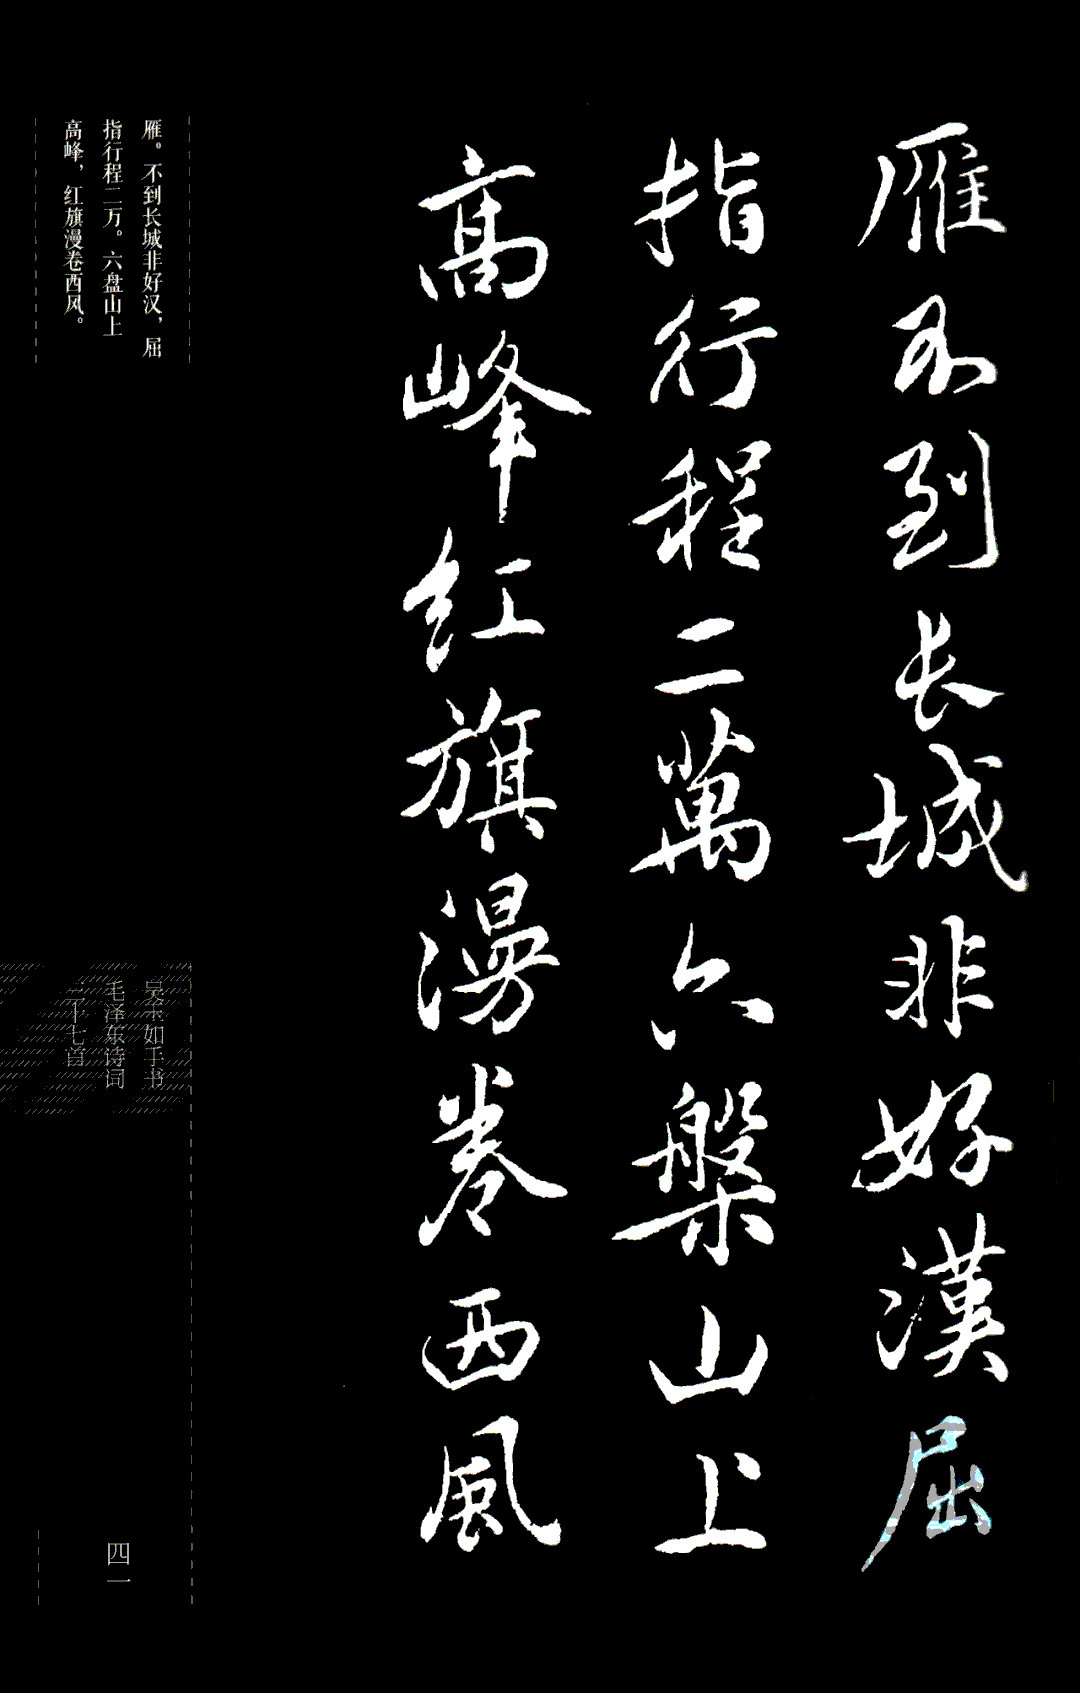 雁不到长城非好漢屈
指行程二萬六槃山上
高峰红旗漫卷西風
雁。不到长城非好汉，屈
指行程二万。六盘山上
高峰，红旗漫卷西风。
吴玉如手书
毛泽东诗词
三十七首
四一